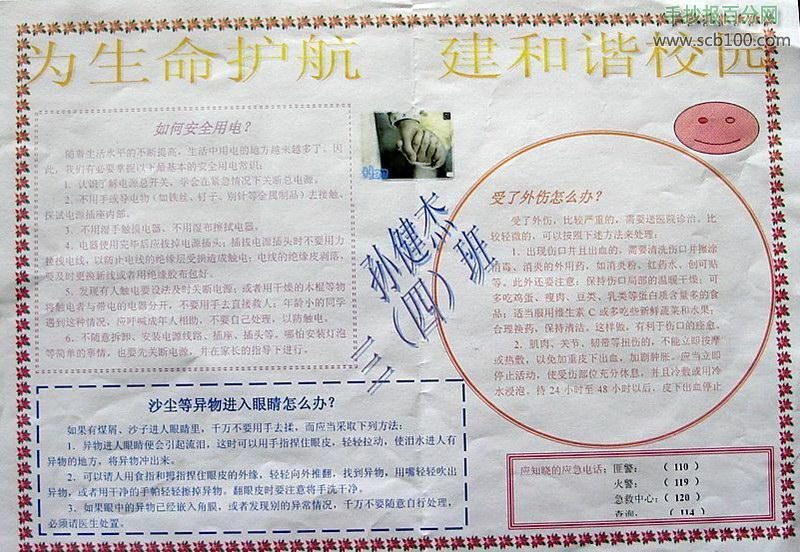 手抄报百分网
www.scb100.com
为生命护航 建和谐校园
如何安全用电?
随着生活水平的不断提高,生活中用电的地方越来越多了。因
此,我们有必要掌握以下最基本的安全用电常识:
1.认识了解电源总开关,学会在紧急情况下关断总电源。
2.不用手或导电物(如铁丝、钉子、别针等金属制品)去接触、
探试电源插座内部。
3.不用湿手触摸电器,不用湿布擦拭电器。
4.电器使用完毕后应拔掉电源插头;插拔电源插头时不要用力
拉拽电线,以防止电线的绝缘层受损造成触电;电线的绝缘皮剥落,
要及时更换新线或者用绝缘胶布包好。
5.发现有人触电要设法及时关断电源;或者用干燥的木棍等物
将触电者与带电的电器分开,不要用手去直接救人;年龄小的同学
遇到这种情况,应呼喊成年人相助,不要自己处理,以防触电。
6.不随意拆卸、安装电源线路、插座、插头等。哪怕安装灯泡
等简单的事情,也要先关断电源,并在家长的指导下进行。
孙健杰
三(四)班
受了外伤怎么办?
受了外伤,比较严重的,需要送医院诊治,比
较轻微的,可以按照下述方法来处理。
1.出现伤口并且出血的,需要清洗伤口并擦涂
消毒、消炎的外用药,如消炎粉、红药水、创可贴
等。此外还要注意:保持伤口局部的温暖干燥;可
多吃鸡蛋、瘦肉、豆类、乳类等蛋白质含量多的食
品;适当服用维生素C或多吃些新鲜蔬菜和水果;
合理换药,保持清洁。这样做,有利于伤口的愈愈。
2.肌肉、关节、韧带等扭伤的,不能立即按摩
或热敷,以免加重皮下出血,加剧肿胀。应当立即
停止活动,使受伤部位充分休息,并且冷敷或用冷
水浸泡。待24小时至48小时以后,皮下出血停止
沙尘等异物进入眼睛怎么办?
如果有煤屑、沙子进入眼睛里,千万不要用手去揉,而应当采取下列方法:
1.异物进入眼睛便会引起流泪,这时可以用手指捏住眼皮,轻轻拉动,使泪水进入有
异物的地方,将异物冲出来。
2.可以请人用食指和拇指捏住眼皮的外缘,轻轻向外推翻,找到异物,用嘴轻轻吹出
异物,或者用干净的手帕轻轻擦掉异物。翻眼皮时要注意将手洗干净。
3.如果眼中的异物已经嵌入角膜,或者发现别的异常情况,千万不要随意自行处理,
必须请医生处置。
应知晓的应急电话:匪警: (110)
火警: (119)
急救中心:(120)
查询: (114)